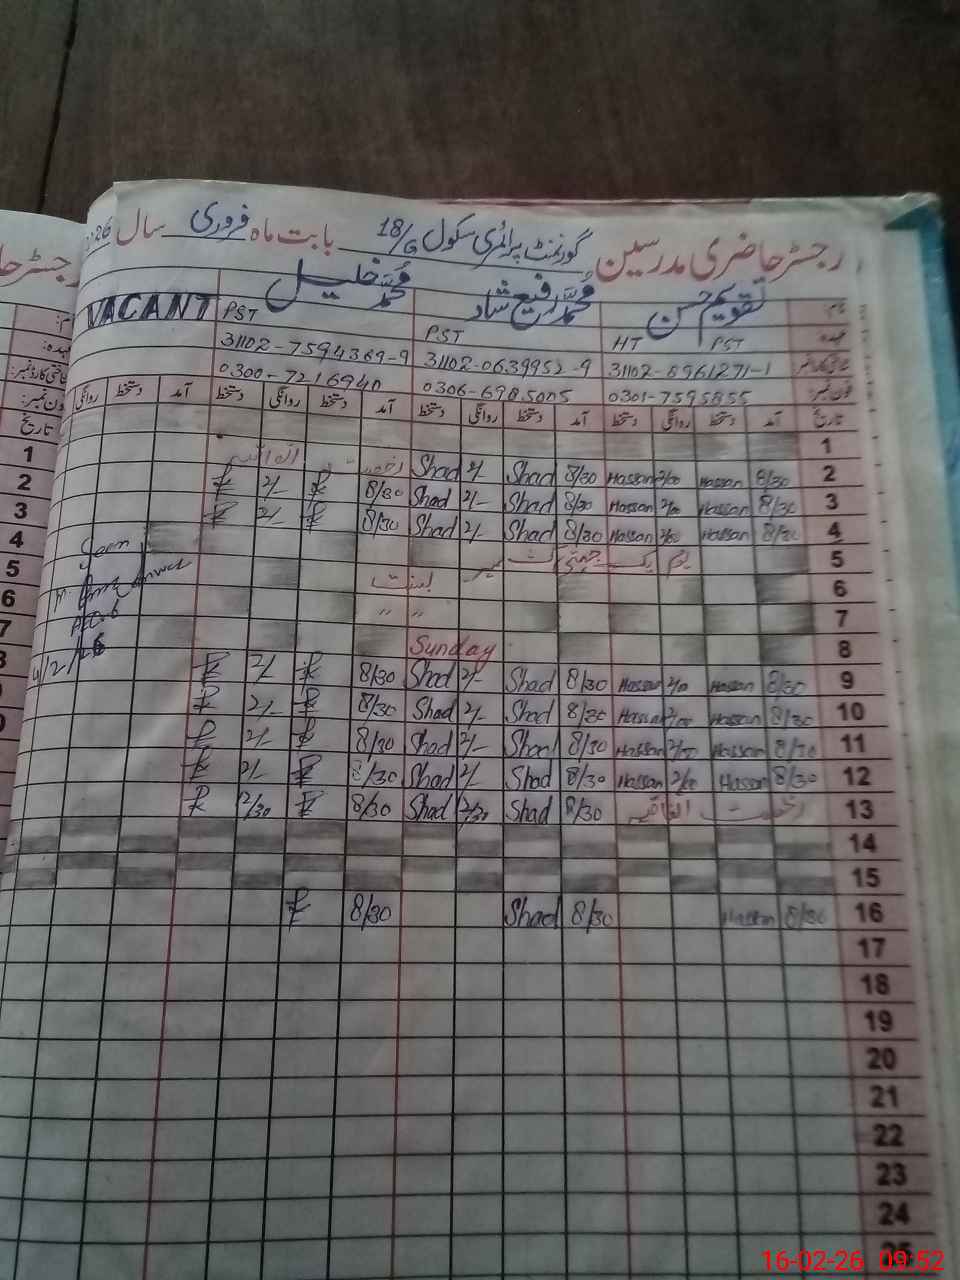 رجسٹر حاضری مدرسین گورنمنٹ پرائمری سکول 18/G بابت ماہ فروری سال
نام تقویم حسن محمد رفیع شاد محمد خلیل VACANT
عہدہ HT PST PST PST
31102-6961271-1 31102-0639952-9 31102-7594369-9
فون نمبر: 0301-7595855 0306-6985005 0300-7216940
تاریخ آمد دستخط روانگی دستخط آمد دستخط روانگی دستخط آمد دستخط روانگی دستخط آمد دستخط روانگی
1
2 8/30 Hassan 2/00 Hassan 8/30 Shad 2/- Shad
3 8/30 Hassan 2/00 Hassan 8/30 Shad 2/- Shad 8/30 2/-
4 8/30 Hassan 2/00 Hassan 8/30 Shad 2/- Shad 8/30 2/-
5 یوم یک جہتی کشمیر
6
7 " "
8 Sunday
9 8/30 Hassan 2/00 Hassan 8/30 Shad 2/- Shad 8/30 2/-
10 8/30 Hassan 2/00 Hassan 8/30 Shad 2/- Shad 8/30 2/-
11 8/30 Hassan 2/00 Hassan 8/30 Shad 2/- Shad 8/30 2/-
12 8/30 Hassan 2/00 Hassan 8/30 Shad 2/- Shad 8/30 2/-
13 رخصت اتفاقیہ 8/30 Shad 12/30 Shad 8/30 12/30
14
15
16 8/30 Hassan 8/30 Shad 8/30
17
18
19
20
21
22
23
24
25
Seen
4/2/26
16-02-26 09:52